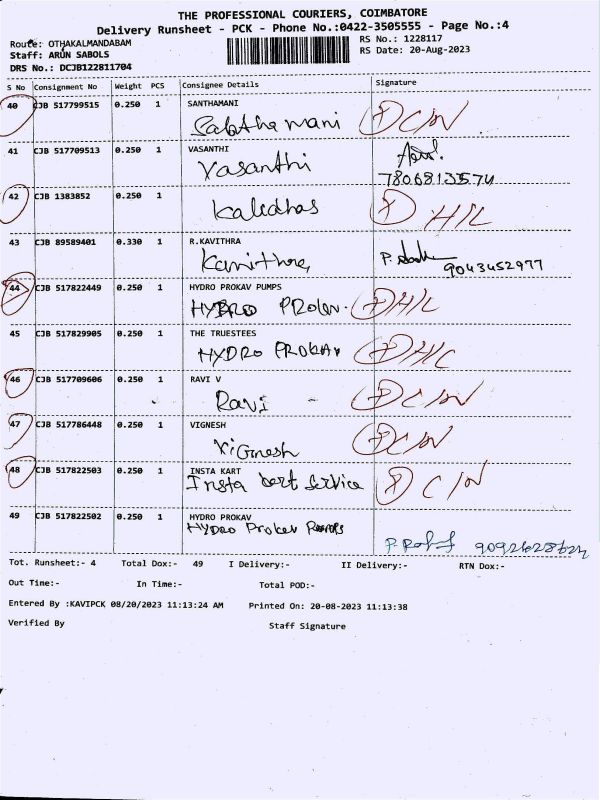 THE PROFESSIONAL COURIERS, COIMBATORE
Delivery Runsheet - PCK - Phone No.:0422-3505555 - Page No.:4
Route: OTHAKALMANDABAM
RS No.: 1228117
Staff: ARUN SABOLS
RS Date: 20-Aug-2023
DRS No.: DCJB122811704
S No Consignment No Weight PCS Consignee Details Signature
40 CJB 517799515 0.250 1 SANTHAMANI
41 CJB 517709513 0.250 1 VASANTHI
Vasanthi
7806813574
42 CJB 1383852 0.250 1
Kalidhas H/L
43 CJB 89589401 0.330 1 R.KAVITHRA
9043452977
44 CJB 517822449 0.250 1 HYDRO PROKAV PUMPS
HYDRO H/L
45 CJB 517829905 0.250 1 THE TRUESTEES
HYDRO PROKAV
46 CJB 517709606 0.250 1 RAVI V
Ravi - C/N
47 CJB 517786448 0.250 1 VIGNESH
Vignesh C/N
48 CJB 517822503 0.250 1 INSTA KART
Insta Service C/N
49 CJB 517822502 0.250 1 HYDRO PROKAV
Hydro Prokav
Tot. Runsheet:- 4 Total Dox:- 49 I Delivery:- II Delivery:- RTN Dox:-
Out Time:- In Time:- Total POD:-
Entered By :KAVIPCK 08/20/2023 11:13:24 AM Printed On: 20-08-2023 11:13:38
Verified By Staff Signature